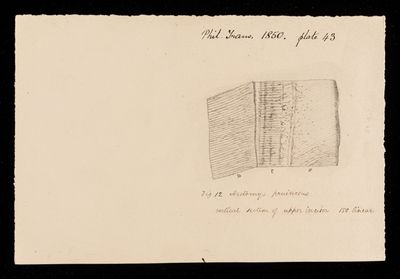 Phil. Trans. 1850. plate 43
Fig 12 Arctomys pruinosus
vertical section of upper incisor 150 linear